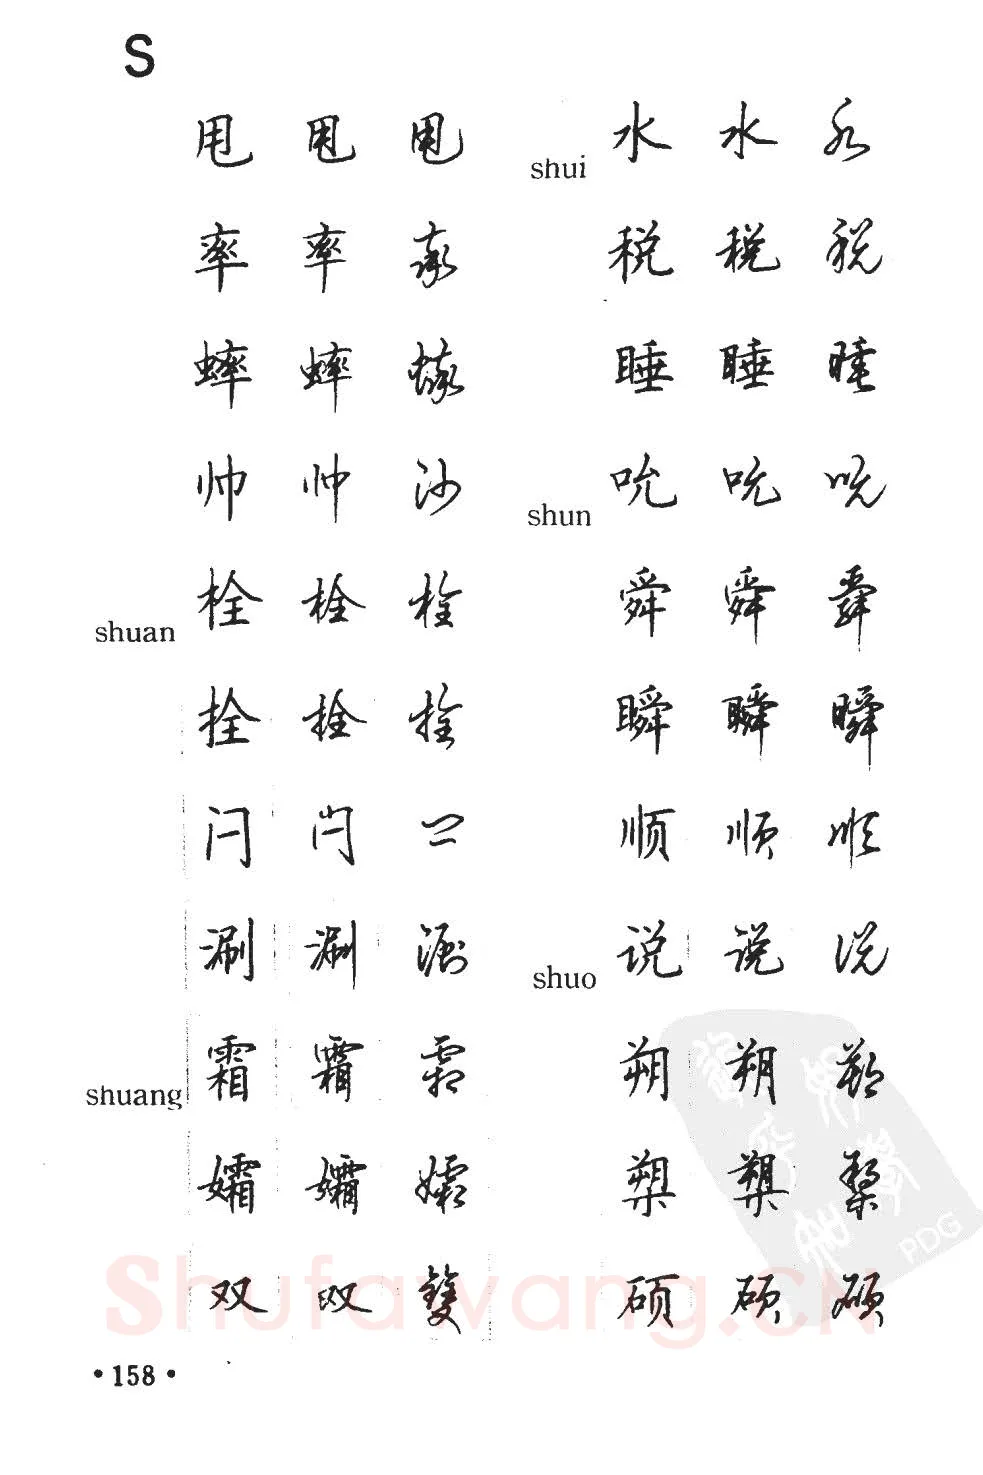 S
甩 甩 甩
率 率 率
蟀 蟀 蟀
帅 帅 帅
shuan 栓 栓 栓
拴 拴 拴
闩 闩 闩
涮 涮 涮
shuang 霜 霜 霜
孀 孀 孀
双 双 雙
shui 水 水 水
税 税 税
睡 睡 睡
shun 吮 吮 吮
舜 舜 舜
瞬 瞬 瞬
顺 顺 顺
shuo 说 说 说
朔 朔 朔
槊 槊 槊
硕 硕 硕
·158·
Shufawang.CN
PDG